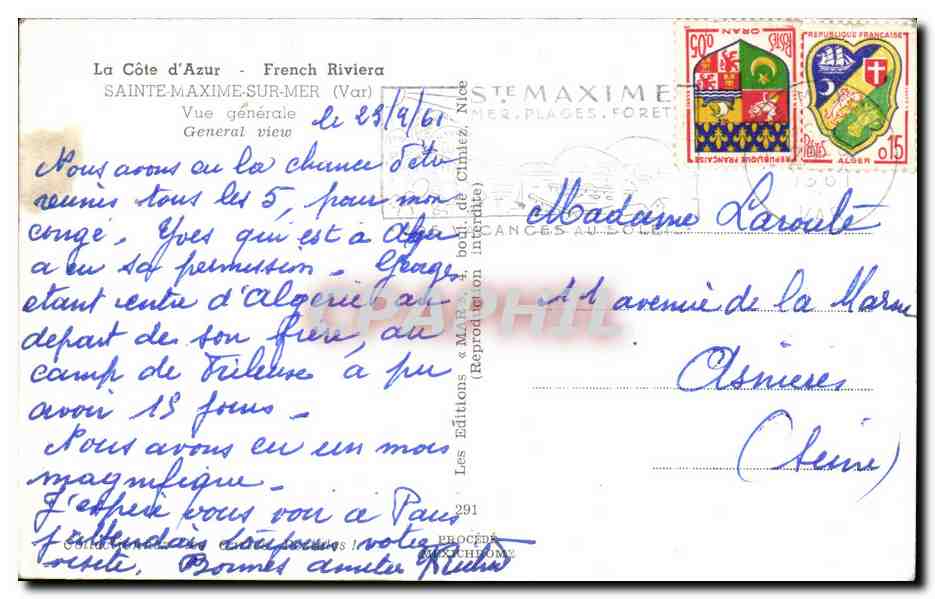 La Côte d'Azur - French Riviera
SAINTE-MAXIME-SUR-MER (Var)
Vue générale
General view
le 23/9/61
Nous avons eu la chance d'etre
reunis tous les 5, pour mon
congé. Yves qui est à Alger
a eu sa permission. Georges
etant rentre d'Algerie au
depart de son frère, au
camp de Frileuse à pu
avoir 15 jours.
Nous avons eu un mois
magnifique.
J'espère vous voir à Paris
j'attendais toujours votre
visite. Bonnes amities
Les Editions « MAR », 4, boul. de Cimiez, Nice
(Reproduction interdite)
291
PROCÉDÉ
MEXICHROME
STE MAXIME
MER, PLAGES, FORET
VACANCES AU SOLEIL
1961
VAR
POSTES
ORAN
0,05
REPUBLIQUE FRANÇAISE
REPUBLIQUE FRANÇAISE
POSTES
0,15
ALGER
Madame Laroute
11 avenue de la Marne
Asnieres
(Seine)
CPAPHIL